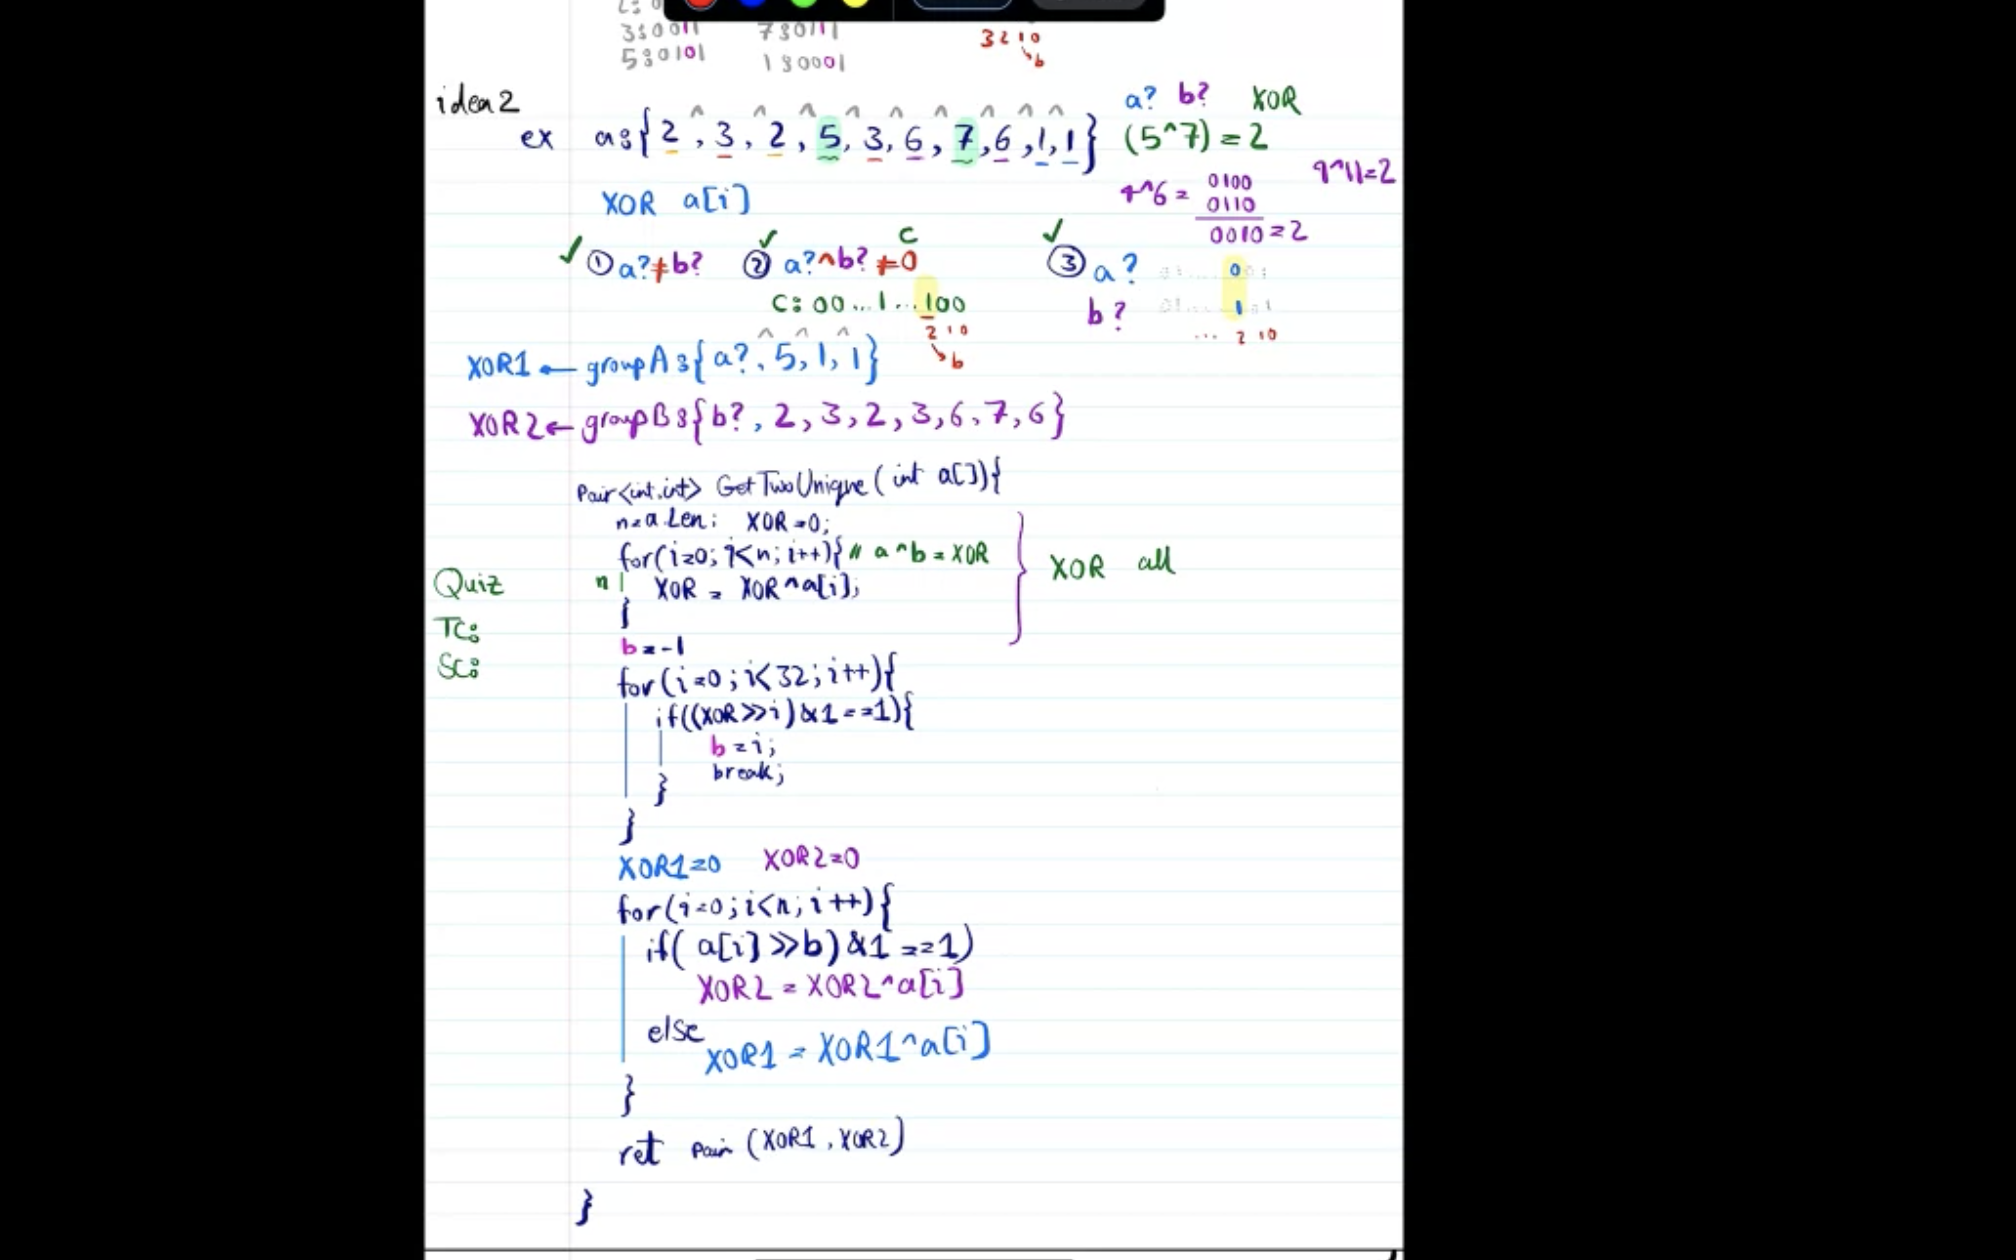 3:0011 7:0111
5:0101 1:0001
3210
b
idea2
a? b? XOR
ex a:{2,3,2,5,3,6,7,6,1,1} (5^7)=2
9^11=2
XOR a[i]
4^6= 0100
0110
0010=2
① a?≠b? ② a?^b?≠0 ③ a? 0
C
C:00...1...100
b? 1
210 ... 2 10
b
XOR1 ← groupA:{a?,5,1,1}
XOR2 ← groupB:{b?,2,3,2,3,6,7,6}
Pair<int,int> GetTwoUnique(int a[]){
n=a.len; XOR=0;
for(i=0;i<n;i++){ // a^b=XOR
XOR all
Quiz
n XOR = XOR^a[i];
}
TC:
b=-1
SC:
for(i=0;i<32;i++){
if((XOR>>i)&1==1){
b=i;
break;
}
}
XOR1=0 XOR2=0
for(i=0;i<n;i++){
if( a[i]>>b)&1==1)
XOR2 = XOR2^a[i]
else
XOR1 = XOR1^a[i]
}
ret Pair (XOR1,XOR2)
}